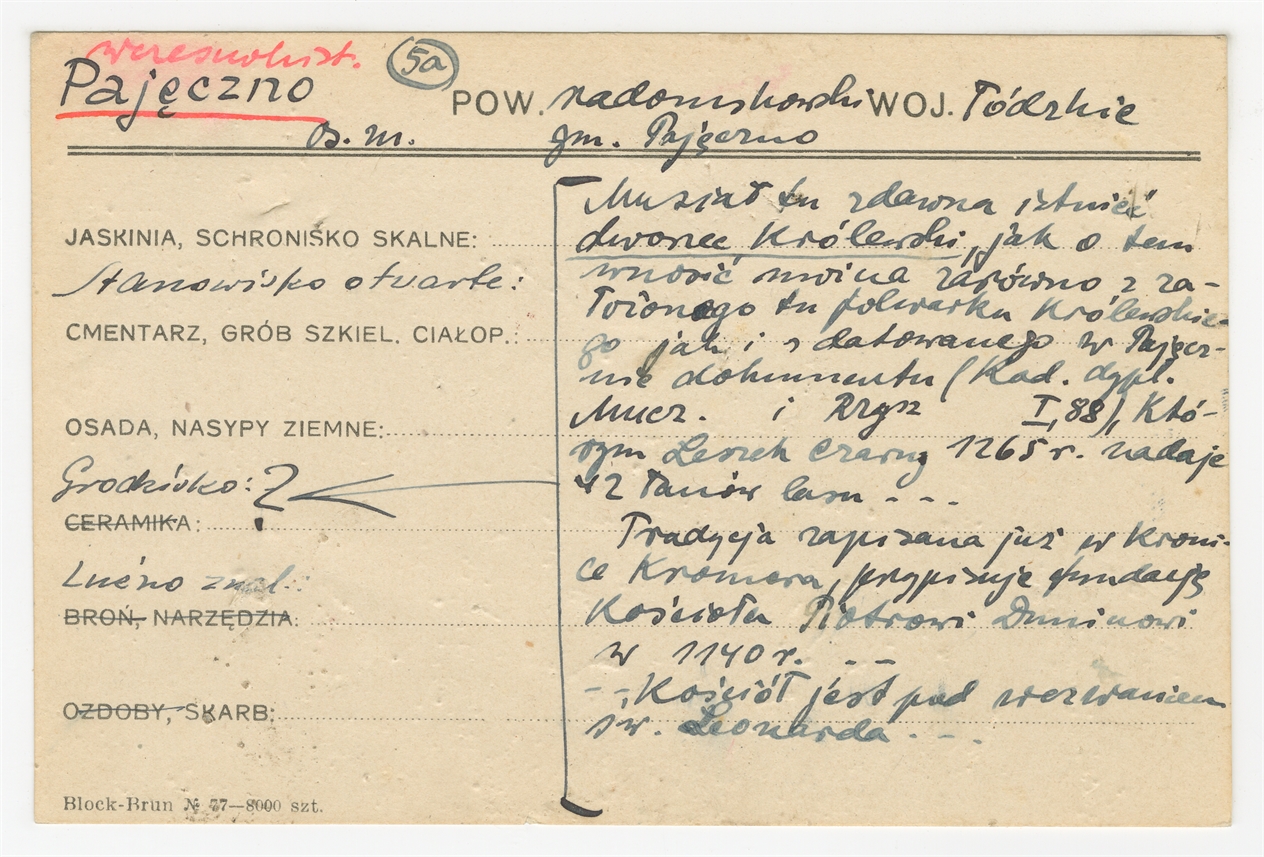 wczesnohist.
Pajęczno
5a
POW. radomskowski WOJ. Łódzkie
os. m. gm. Pajęczno
JASKINIA, SCHRONISKO SKALNE:
Stanowisko otwarte:
CMENTARZ, GRÓB SZKIEL. CIAŁOP.:
OSADA, NASYPY ZIEMNE:
Grodzisko: ?
CERAMIKA:
Luźno znal.:
BROŃ, NARZĘDZIA:
OZDOBY, SKARB:
Block-Brun № 77—8000 szt.
Musiał tu zdawna istnieć
dworzec Królewski, jak o tem
wnosić można zarówno z za-
łożonego tu folwarku Królewskie-
go jak i z datowanego w Pajęcz-
nie dokumentu (Kod. dypl.
Mucz. i Rzysz I, 88), Któ-
rym Leszek Czarny 1265 r. nadaje
12 łanów lasu - - -
Tradycja zapisana już w Kroni-
ce Kromera, przypisuje fundację
Kościoła Piotrowi Duninowi
w 1140 r. - -
- - Kościół jest pod wezwaniem
św. Leonarda - - -